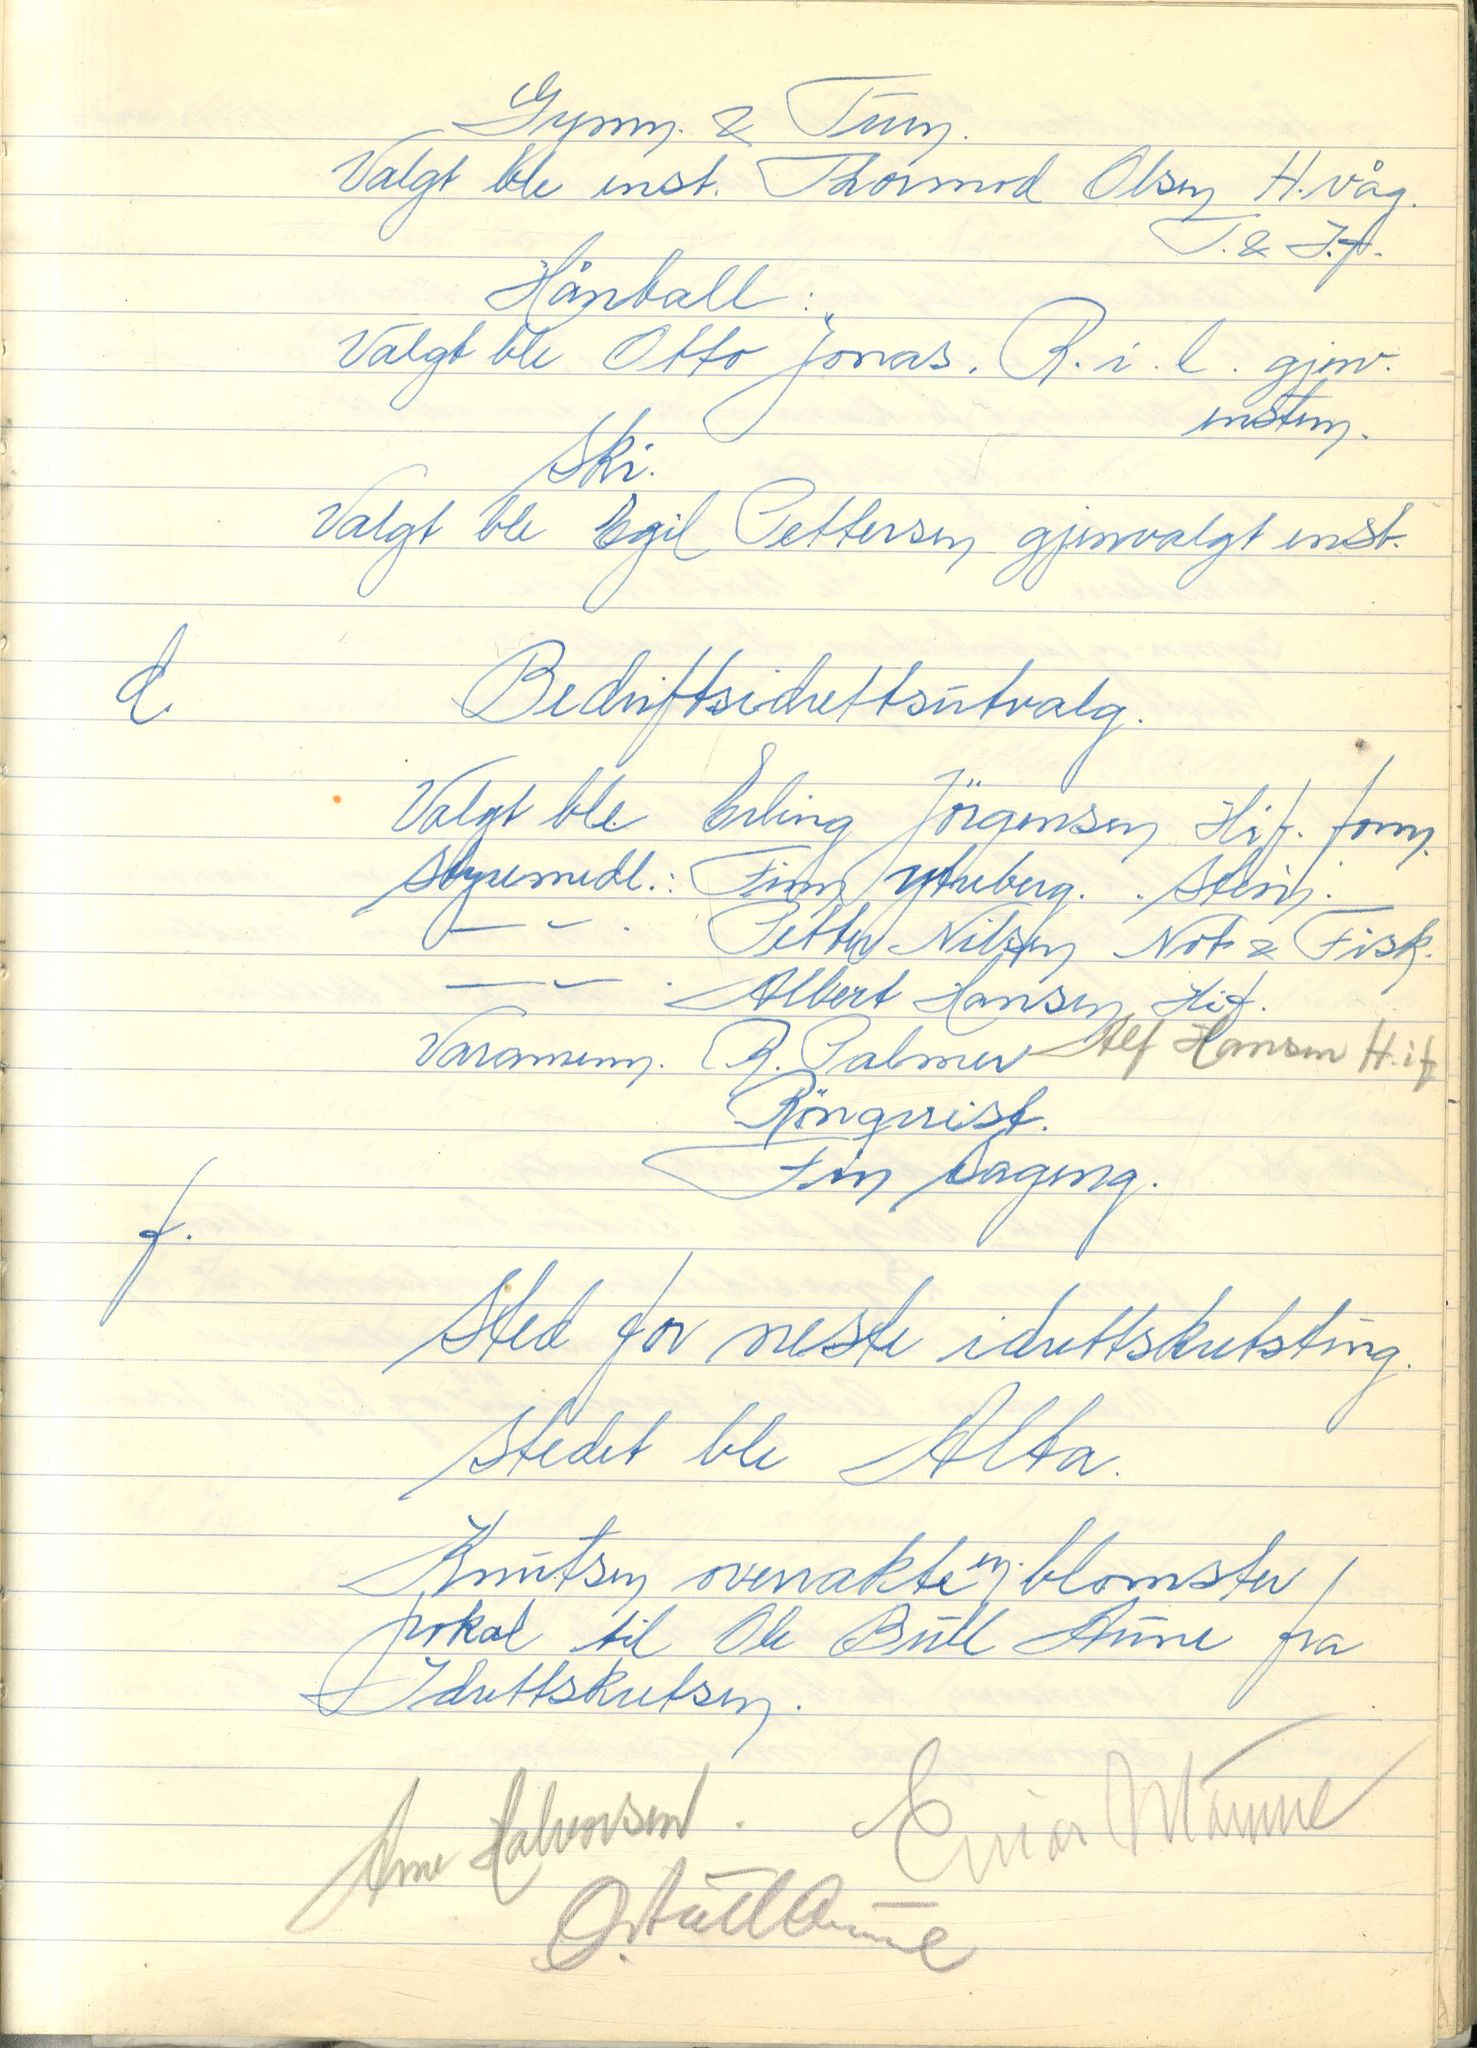 Gymn. & Turn.
Valgt ble enst. Thormod Olsen H.våg.
T. & I.f.
Hånball:
Valgt ble Otto Jonas. R.i.l. gjenv.
enstem.
Ski.
Valgt ble Egil Pettersen gjenvalgt enst.
d. Bedriftsidrettsutvalg.
Valgt ble Erling Jörgensen Hif. form.
Styremedl.: Finn Ytreberg. Stein.
— - . Petter Nilsen Not & Fisk.
— - . Albert Hansen Hif.
Varamenn. R. Palmer Alf Hansen H.if
Rönqvist.
Finn Sageng.
f.
Sted for neste idrettskretsting.
Stedet ble Alta.
Knutsen overrakte en blomster
pokal til Ole Bull Aune fra
Idrettskretsen.
Arne Halvorsen. Einar
O. Bull Aune